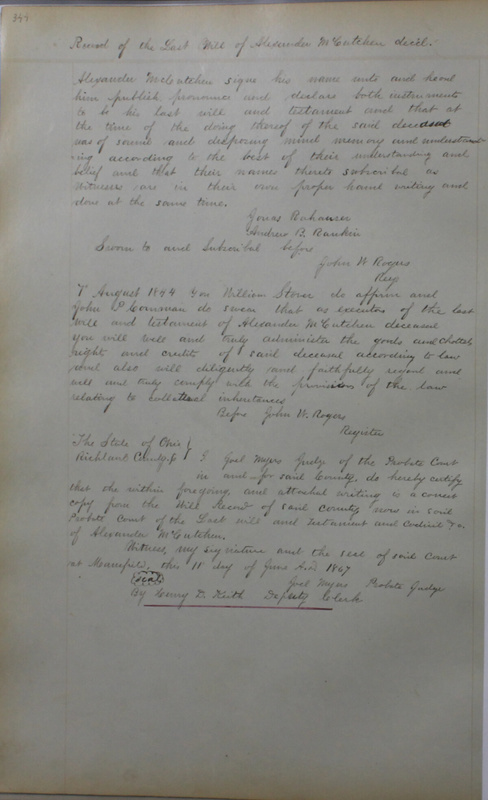 347
Record of the Last Will of Alexander McCutchen dec'd.
Alexander McCutchen signe his name unto and heard
him publish pronounce and declare both instruments
to be his last will and testament and that at
the time of the doing thereof of the said deceased
was of sound and disposing mind memory and understand-
ing according to the best of their understanding and
belief and that their names thereto subscribed as
witnesses are in their own proper hand writing and
done at the same time.
Jonas
Andrew B. Rankin
Sworn to and Subscribed before
John W Rogers
Reg
August 1844 You William Storer do affirm and
John do swear that as executors of the last
will and testament of Alexander McCutchen deceased
you will well and truly administer the goods and chattels
rights and credits of said deceased according to law
and also will diligently and faithfully regard and
well and truly comply with the provisions of the law
relating to collateral inheritances
Before John W. Rogers
Register
The State of Ohio
Richland County I Joel Myers Judge of the Probate Court
in and for said County, do hereby certify
that the within foregoing and attached writing is a correct
copy from the Will Record of said county now in said
Probate Court of the Last will and testament and Codicil
of Alexander McCutchen.
Witness, my signature and the seal of said Court
at Mansfield, this 15 day of June A.D. 1867
Seal Joel Myers Probate Judge
By Henry D. Keith Deputy Clerk